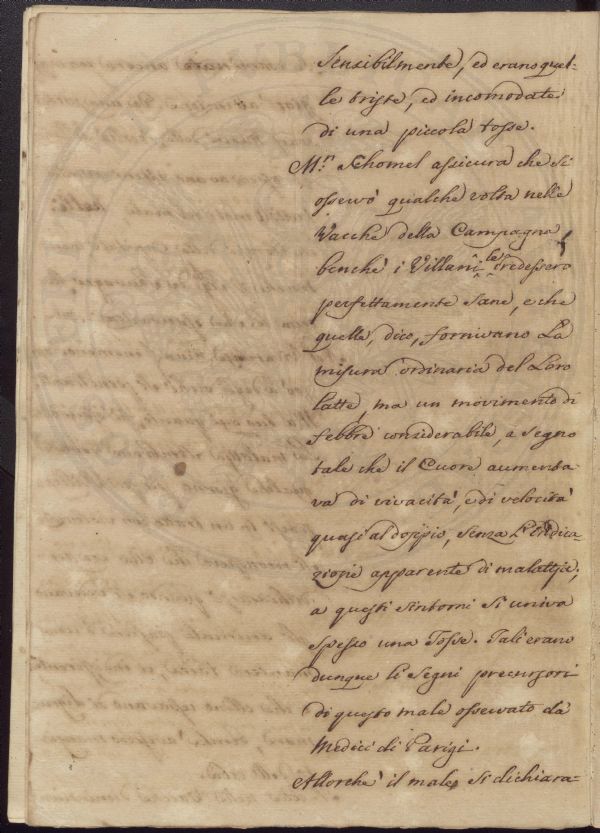 sensibilmente, ed erano quel-
le triste, ed incomodate
di una piccola tosse.
M.r Chomel assicura che si
osservò qualche volta nelle
Vacche della Campagna,
benchè i Villani le credessero
perfettamente sane, e che
quelle, dico, fornivano La
misura ordinaria del Loro
latte, ma un movimento di
febbre considerabile, a segno
tale che il Cuore aumenta
va di vivacità, e di velocità
quasi al doppio, senza L'Indica-
zione apparente di malattia;
a questi sintomi si univa
spesso una Tosse. Tali erano
dunque li segni precursori
di questo male osservato da
Medici di Parigi.
Allorchè il male si dichiara-